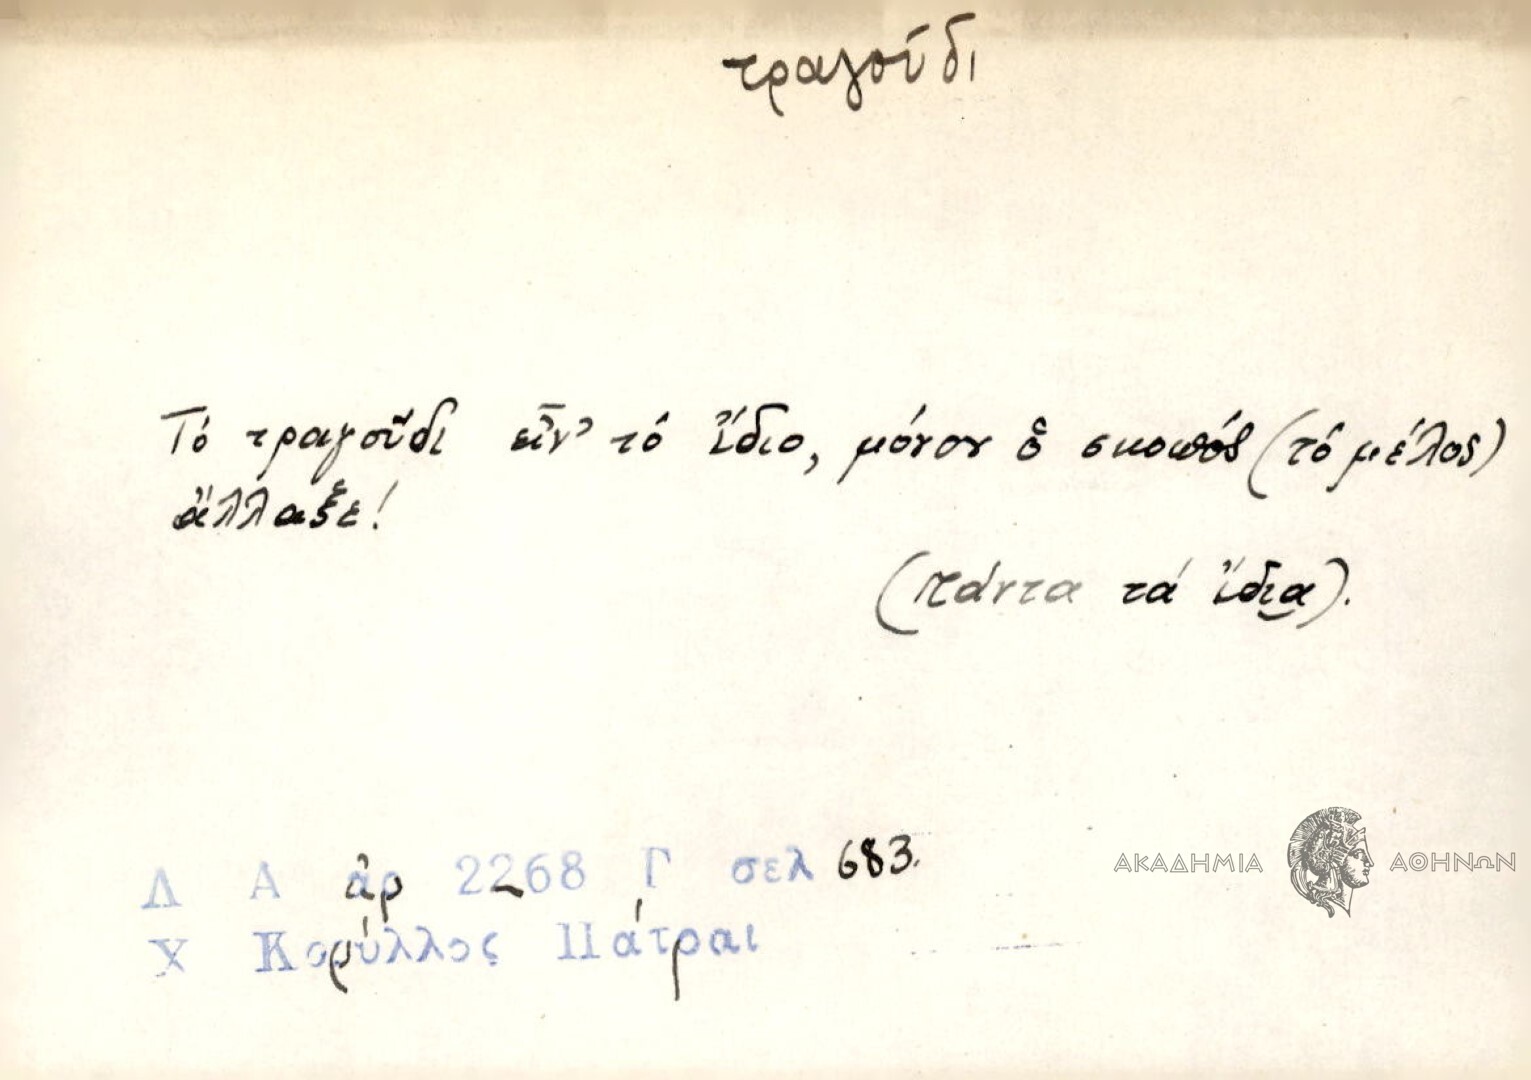 τραγούδι
Τό τραγοῦδι εἶν' τό ἴδιο, μόνον ὁ σκοπός (τό μέλος)
ἄλλαξε!
(πάντα τά ἴδια).
Λ Α ἀρ 2268 Γ σελ 683.
ΑΚΑΔΗΜΙΑ ΑΘΗΝΩΝ
Χ Κορύλλος Πάτραι